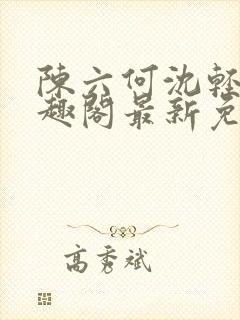 陳六何沈輕
趣閣最新免
高秀斌